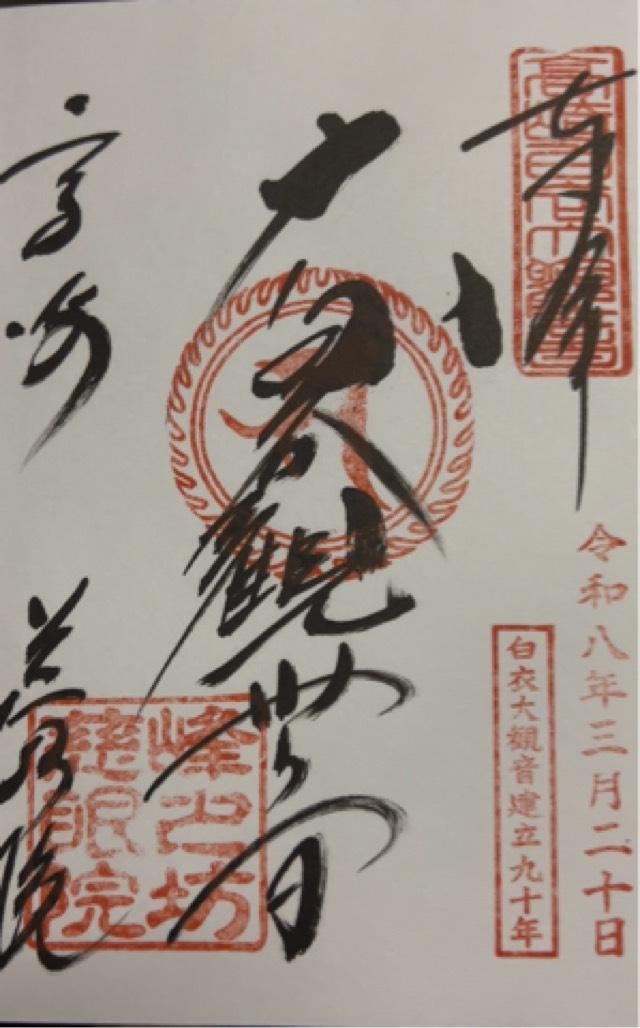 奉拝
令和八年三月二十日
白衣大觀音建立九十年
大白衣觀世音
峰之坊
慈眼院
高崎 慈眼院